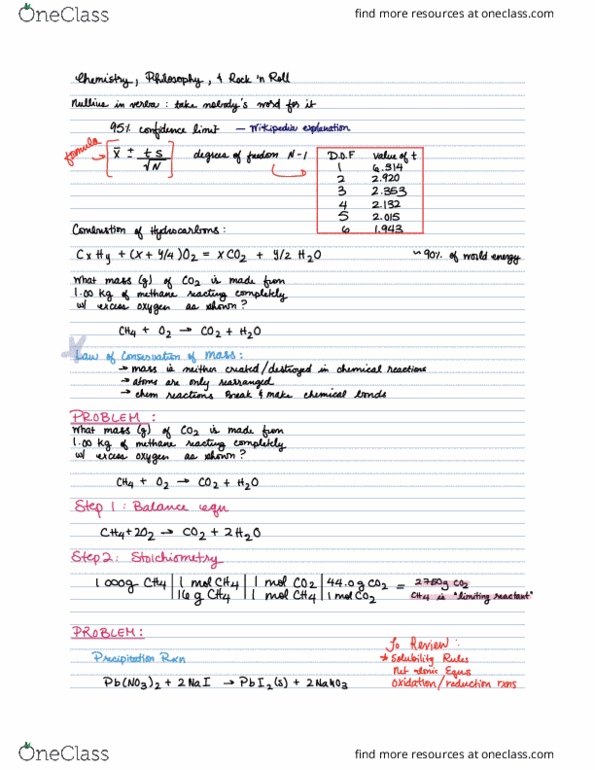 OneClass
find more resources at oneclass.com
Chemistry, Philosophy, & Rock 'n Roll
Nullius in verba : take nobody's word for it
95% confidence limit – Wikipedia explanation
formula
x̄ ± ts/√N degrees of freedom N-1
D.O.F value of t
1 6.314
2 2.920
3 2.353
4 2.132
5 2.015
6 1.943
Combustion of Hydrocarbons :
CxHy + (x + y/4)O2 = xCO2 + y/2 H2O ~90% of world energy
What mass (g) of CO2 is made from
1.00 kg of methane reacting completely
w/ excess oxygen as shown ?
CH4 + O2 → CO2 + H2O
Law of Conservation of mass :
→ mass is neither created/destroyed in chemical reactions
→ atoms are only rearranged
→ chem reactions break & make chemical bonds
PROBLEM :
What mass (g) of CO2 is made from
1.00 kg of methane reacting completely
w/ excess oxygen as shown ?
CH4 + O2 → CO2 + H2O
Step 1 : Balance equ
CH4+2O2 → CO2 + 2H2O
Step 2: Stoichiometry
1000g CH4 | 1 mol CH4 | 1 mol CO2 | 44.0 g CO2 = 2750g CO2
16 g CH4 | 1 mol CH4 | 1 mol CO2 CH4 is "limiting reactant"
PROBLEM :
Precipitation Rxn
Pb(NO3)2 + 2NaI → PbI2(s) + 2NaNO3
To Review :
* Solubility Rules
Net-Ionic Equs
Oxidation/reduction rxns
OneClass
find more resources at oneclass.com